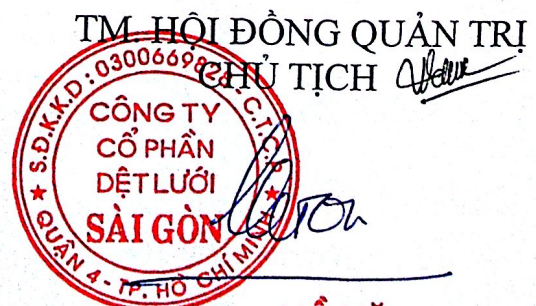 TM. HỘI ĐỒNG QUẢN TRỊ
CHỦ TỊCH
S.Đ.K.K.D: 0300669828 - C.T.C.P
CÔNG TY
CỔ PHẦN
DỆT LƯỚI
SÀI GÒN
QUẬN 4 - TP. HỒ CHÍ MINH